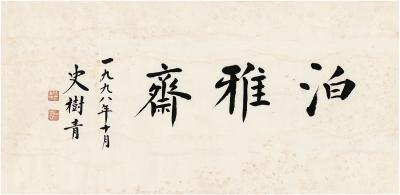 泊雅齋
一九九八年十月
史樹青